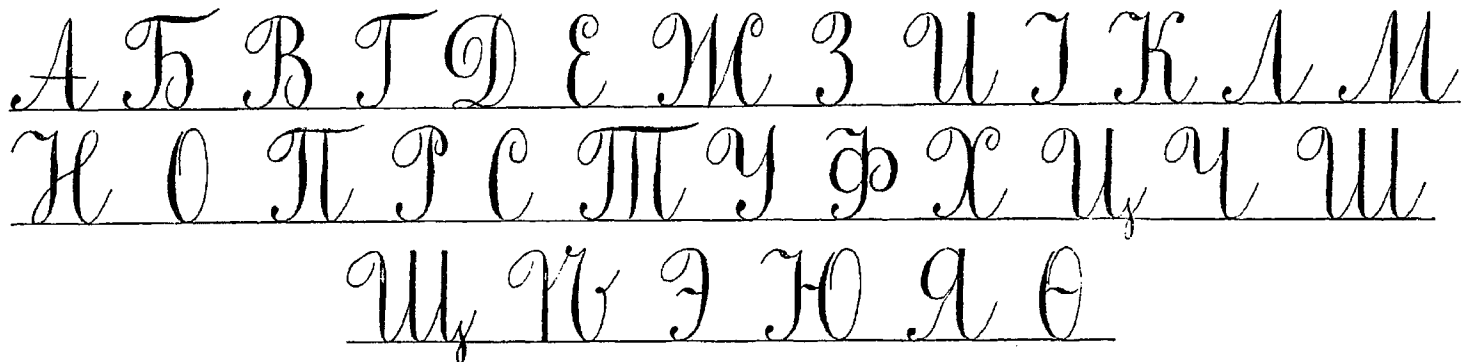 А Б В Г Д Е Ж З И І К Л М
Н О П Р С Т У Ф Х Ц Ч Ш
Щ Ѣ Э Ю Я Ѳ